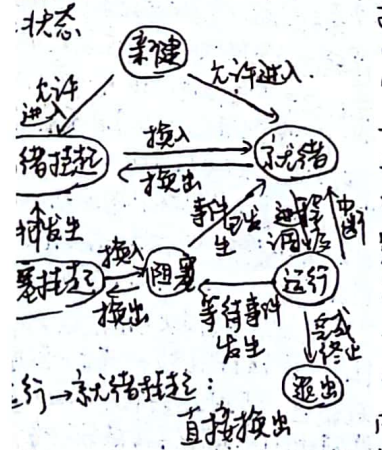 状态
新建
允许进入
允许
进入
绪挂起
换入
换出
就绪
事件
已发
生
进程
调度
中
断
发生
塞挂起
换入
换出
阻塞
运行
等待事件
发生
完成
终止
退出
运行→就绪挂起:
直接换出